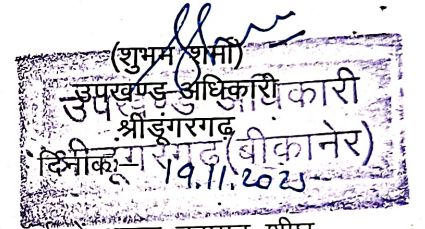 (शुभम शर्मा)
उपखण्ड अधिकारी
श्रीडूंगरगढ़
उपखण्ड अधिकारी
श्रीडूंगरगढ़(बीकानेर)
दिनांक:- 19.11.2025